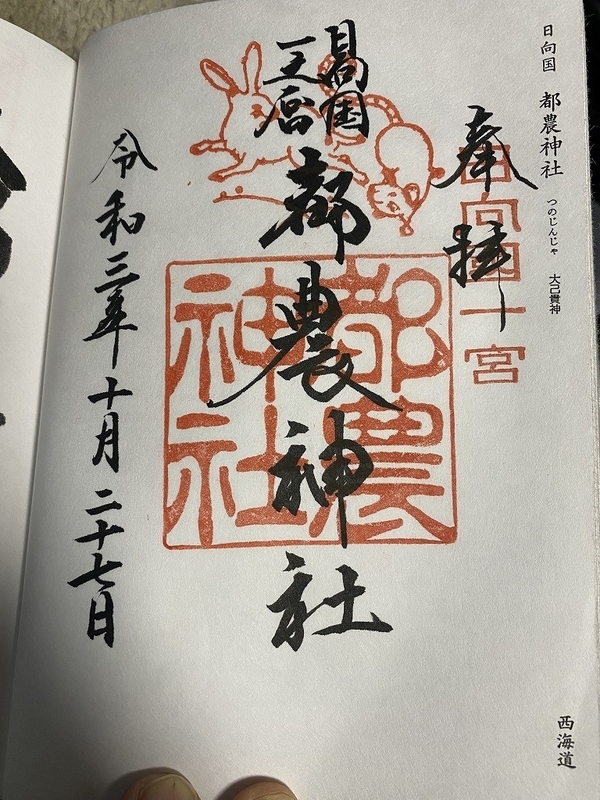 日向国 都農神社 つのじんじゃ 大己貴神
奉拝
日向国一宮
日向国
一之宮
都農神社
都農
神社
令和三年十月二十七日
西海道